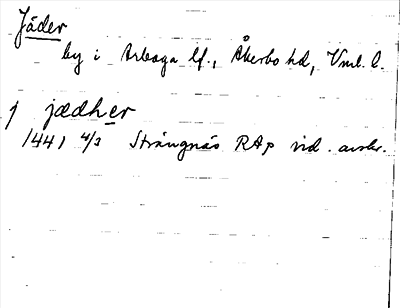 Jäder
by i Arboga lf., Åkerbo hd, Vml. l.
j jædher
1441 4/3 Strängnäs RAp vid. avskr.